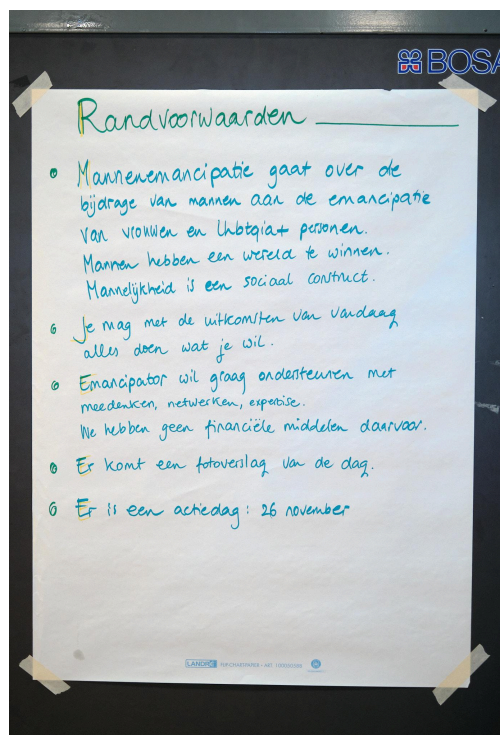 BOSA
Randvoorwaarden
Mannenemancipatie gaat over de
bijdrage van mannen aan de emancipatie
van vrouwen en lhbtqia+ personen.
Mannen hebben een wereld te winnen.
Mannelijkheid is een sociaal construct.
Je mag met de uitkomsten van vandaag
alles doen wat je wil.
Emancipator wil graag ondersteunen met
meedenken, netwerken, expertise.
We hebben geen financiële middelen daarvoor.
Er komt een fotoverslag van de dag.
Er is een actiedag: 26 november
LANDRÉ